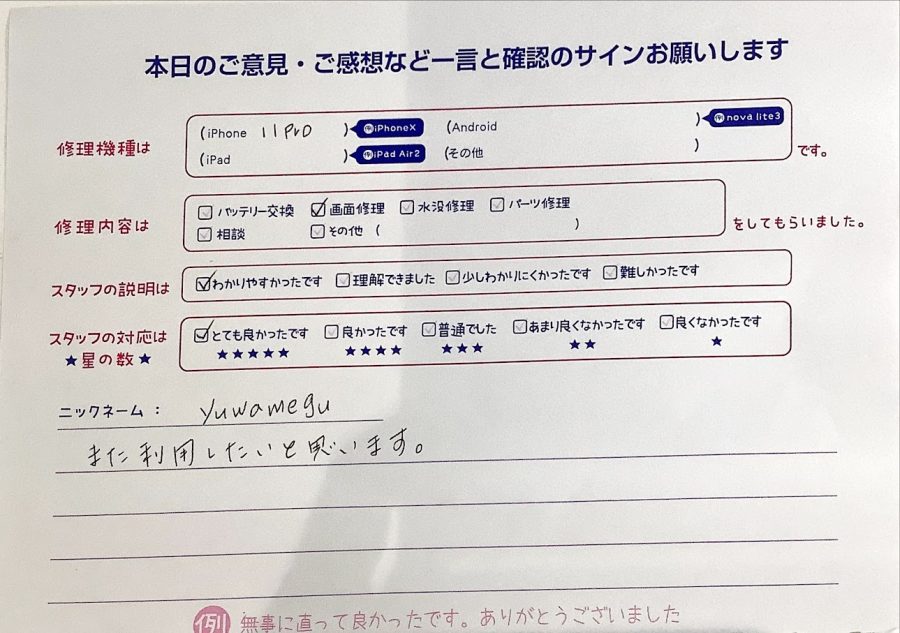 本日のご意見・ご感想など一言と確認のサインお願いします
修理機種は (iPhone 11Pro ) iPhoneX (Android ) nova lite3
(iPad ) iPad Air2 (その他 ) です。
修理内容は バッテリー交換 画面修理 水没修理 パーツ修理
相談 その他 ( ) をしてもらいました。
スタッフの説明は わかりやすかったです 理解できました 少しわかりにくかったです 難しかったです
スタッフの対応は とても良かったです 良かったです 普通でした あまり良くなかったです 良くなかったです
★星の数★ ★★★★★ ★★★★ ★★★ ★★ ★
ニックネーム： yuwamegu
また利用したいと思います。
例 無事に直って良かったです。ありがとうございました